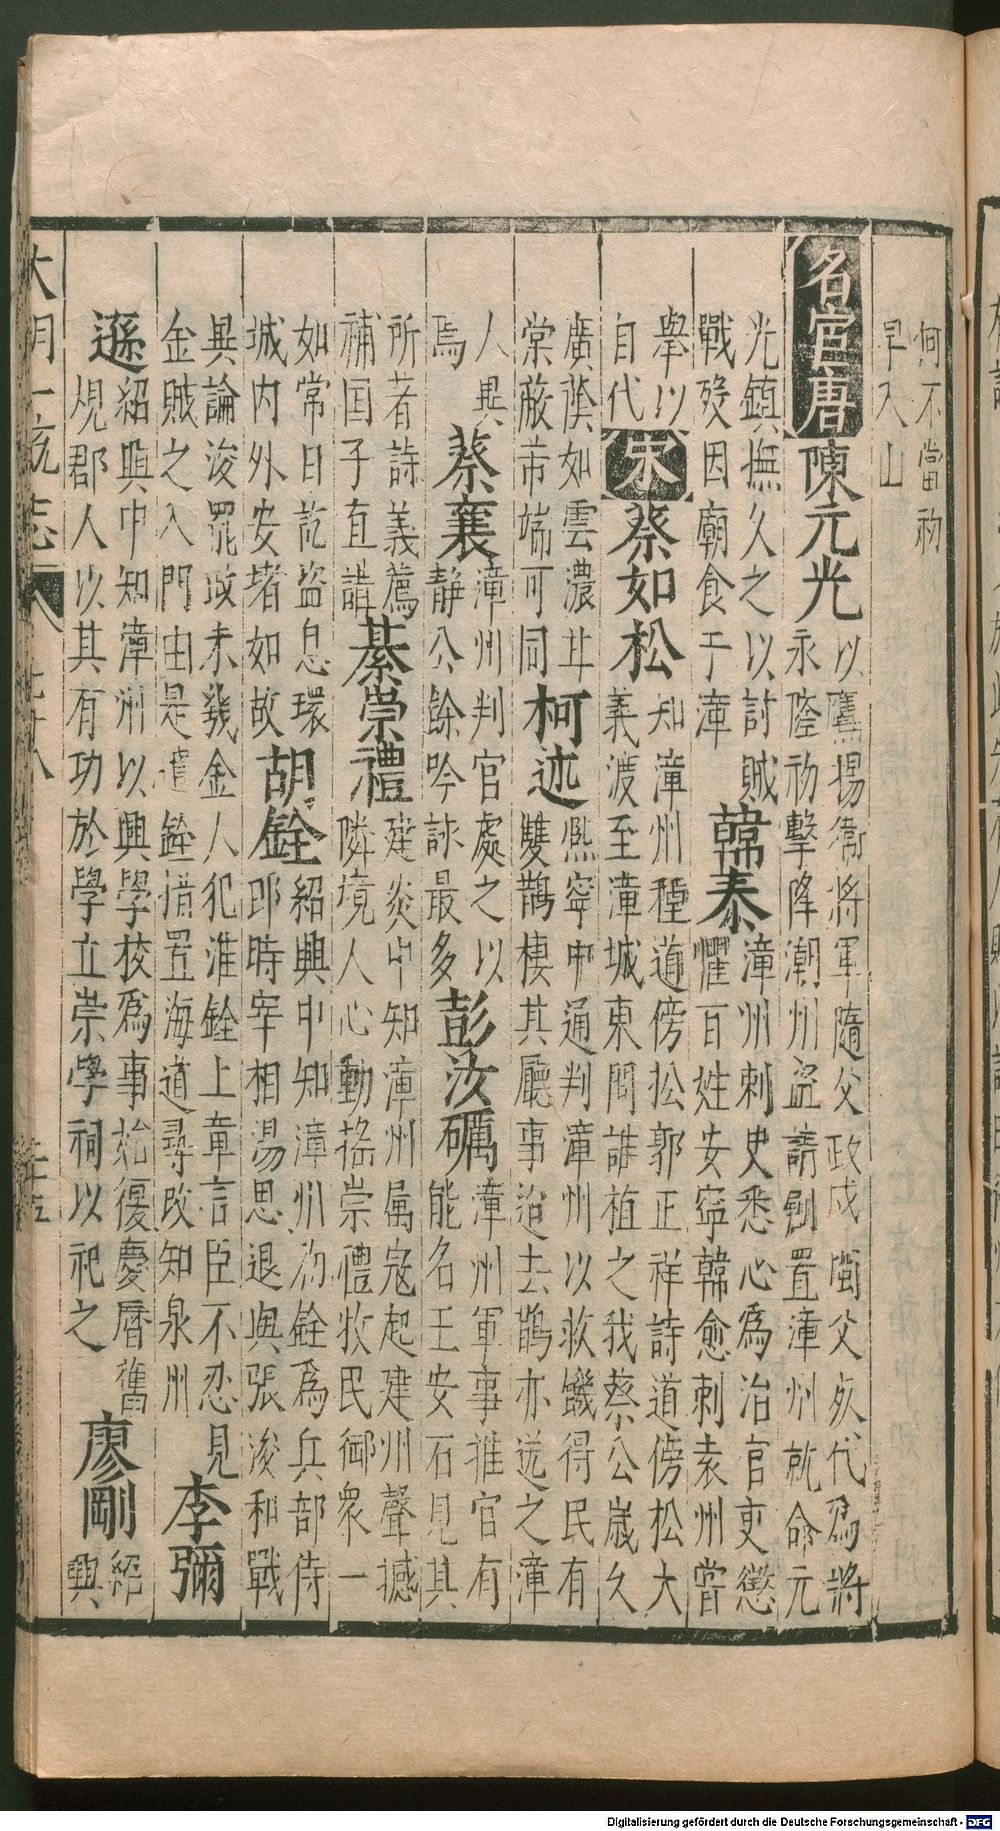 何不當初
早入山
名宦唐陳元光
以鷹揚衛將軍隨父政戍閩父死代爲將
永隆初擊降潮州盜請剏置漳州就命元
光鎮撫久之以討賊
戰歿因廟食于漳
韓泰
漳州刺史悉心爲治官吏懲
懼百姓安寧韓愈刺袁州甞
舉以
自代
宋蔡如松
知漳州種道傍松郭正祥詩道傍松大
義渡至漳城東問誰植之我蔡公歲久
廣蔭如雲濃甘
棠蔽芾端可同
柯述
熈寧中通判漳州以救饑得民有
雙鵲棲其廳事迨去鵲亦送之漳
人異
焉
蔡襄
漳州判官處之以
靜公餘吟詠最多
彭汝礪
漳州軍事推官有
能名王安石見其
所著詩義薦
補国子直講
綦崇禮
建炎中知漳州属寇起建州聲撼
隣境人心動揺崇禮牧民御衆一
如常日訖盗息環
城内外安堵如故
胡銓
紹興中知漳州初銓爲兵部侍
郎時宰相湯思退與張浚和戰
異論浚罷政未幾金人犯淮銓上章言臣不忍見
金賊之入門由是遣銓措置海道尋改知泉州
李彌
遜
紹興中知漳州以興學校爲事始復慶曆舊
規郡人以其有功於學立崇學祠以祀之
廖剛
紹
興
大明一統志 七十八 二十五
Digitalisierung gefördert durch die Deutsche Forschungsgemeinschaft - DFG